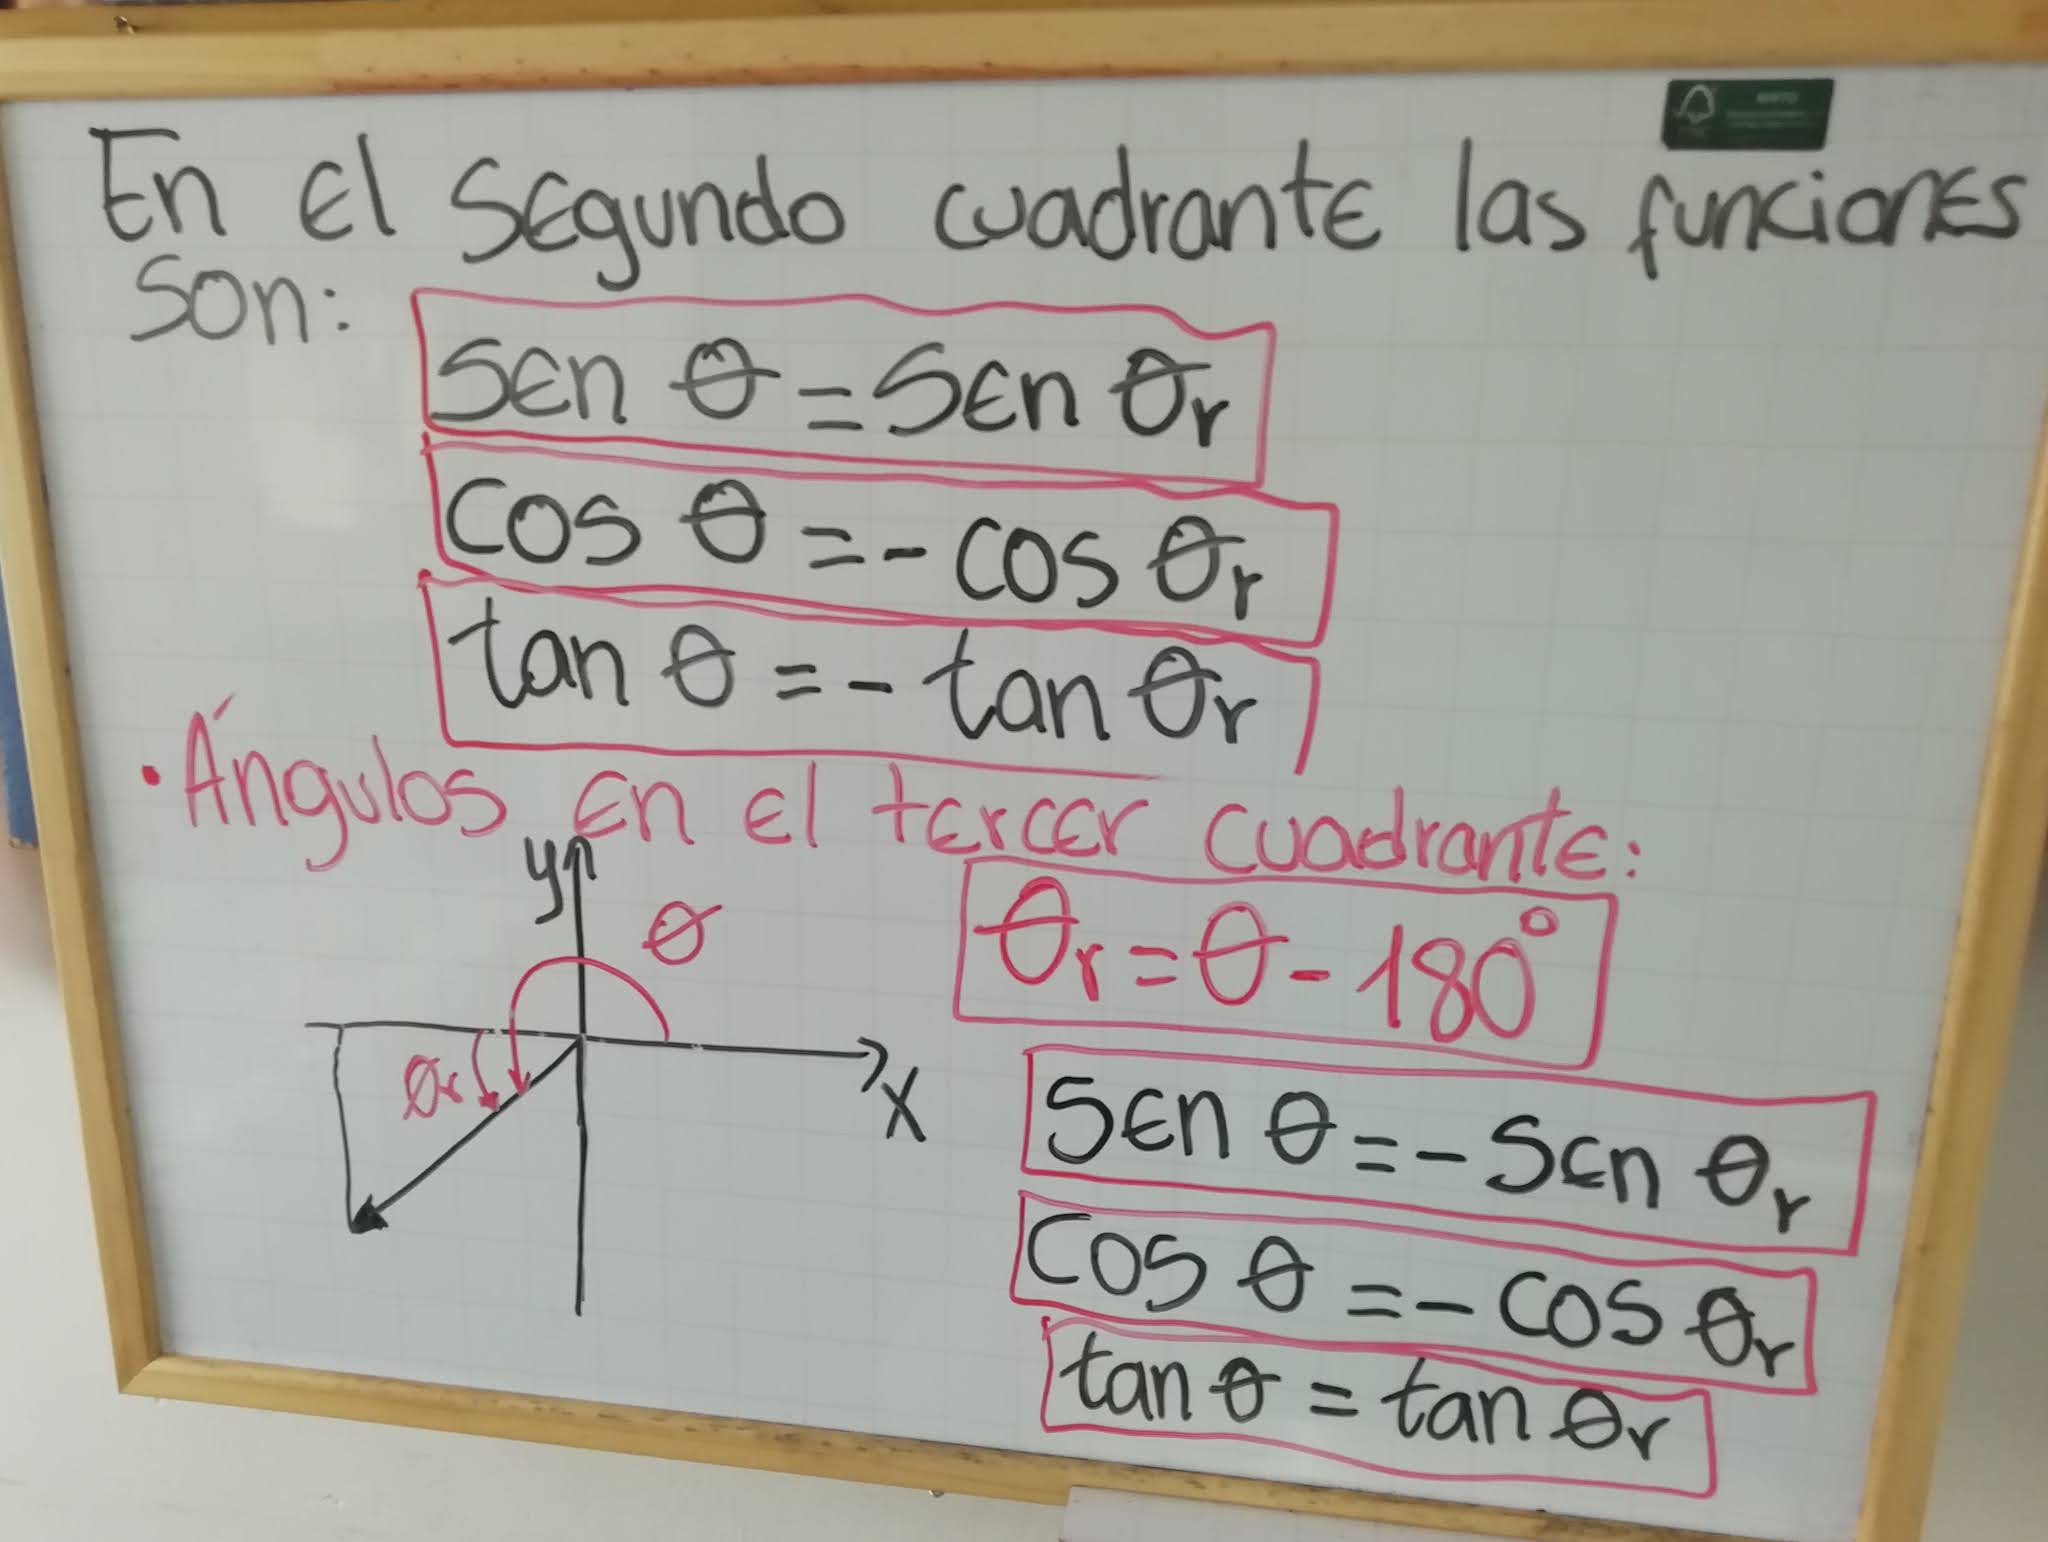 En el segundo cuadrante las funciones
son:
sen θ = sen θr
cos θ = - cos θr
tan θ = - tan θr
• Ángulos en el tercer cuadrante:
y
θ
θr = θ - 180°
θr
x
sen θ = - sen θr
cos θ = - cos θr
tan θ = tan θr